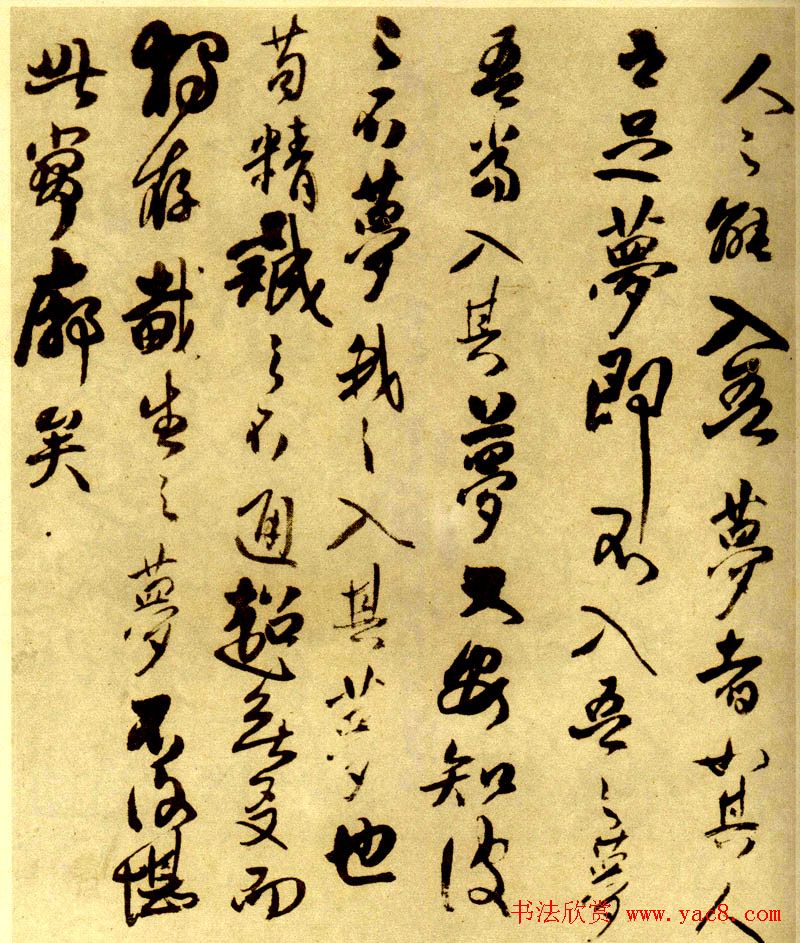 人之能入吾夢者如其人
之足夢即不入吾之夢
吾當入其夢又安知彼
之不夢我之入其夢也
苟精誠之不通超無友而
獨存戴生之夢不復堪
此寥廓矣
书法欣赏 www.yac8.com